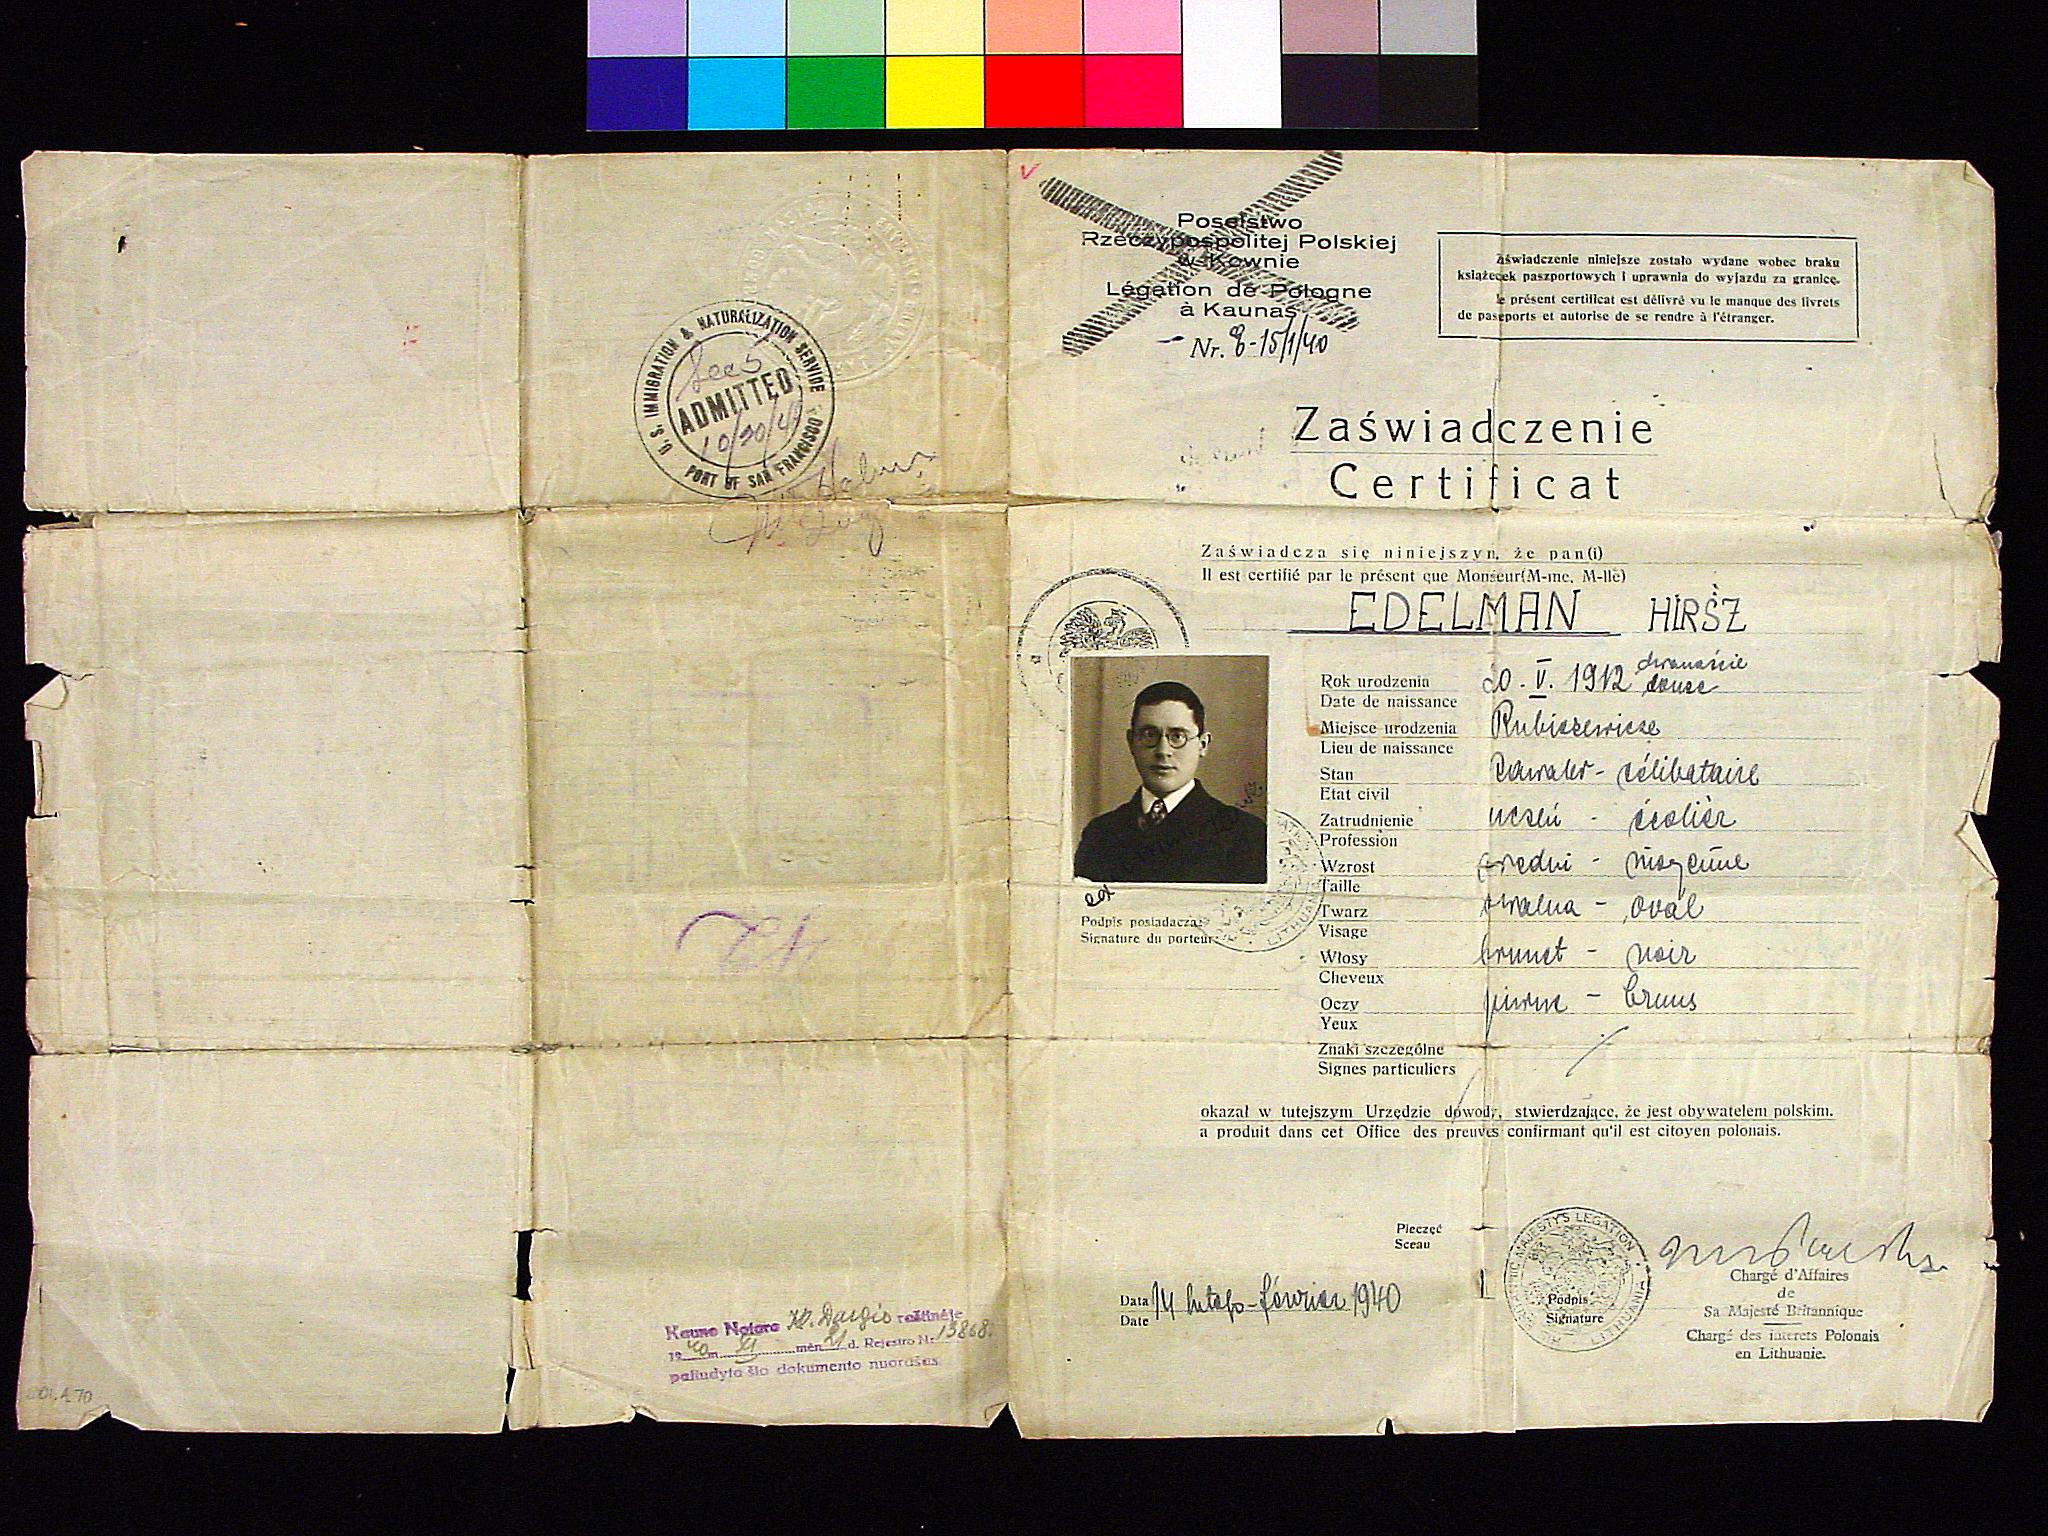 U. S. IMMIGRATION & NATURALIZATION SERVICE
ADMITTED
10/30/4
PORT OF SAN FRANCISCO
Kauno Notaro raštinėje
19 40 m. XI mėn. 21 d. Rejestro Nr. 13868.
paliudyta šio dokumento nuorašas.
01.A.70
Poselstwo
Rzeczypospolitej Polskiej
w Kownie
Légation de Pologne
à Kaunas
Nr. 8-15/1/40
Zaświadczenie niniejsze zostało wydane wobec braku
książeczek paszportowych i uprawnia do wyjazdu za granicę.
Le présent certificat est délivré vu le manque des livrets
de passeports et autorise de se rendre à l'étranger.
Zaświadczenie
Certificat
Zaświadcza się niniejszyn, że pan(i)
Il est certifié par le présent que Monseur(M-me, M-lle)
EDELMAN HIRSZ
Rok urodzenia 20. V. 1912 dwanaście
Date de naissance douze
Miejsce urodzenia Rubieżewicze
Lieu de naissance
Stan Kawaler - célibataire
Etat civil
Zatrudnienie uczeń - écolièr
Profession
Wzrost średni - moyenne
Taille
Twarz owalna - oval
Visage
Włosy brunet - noir
Cheveux
Oczy piwne - bruns
Yeux
Znaki szczególne
Signes particuliers
Podpis posiadacza:
Signature du porteur:
okazał w tutejszym Urzędzie dowody, stwierdzające, że jest obywatelem polskim.
a produit dans cet Office des preuves confirmant qu'il est citoyen polonais.
Pieczęć
Sceau
Data 14 lutego - février 1940
Date
MAJESTYS LEGATION
LITHUANIA
Podpis
Signature
Chargé d'Affaires
de
Sa Majesté Britannique
Chargé des interets Polonais
en Lithuanie.